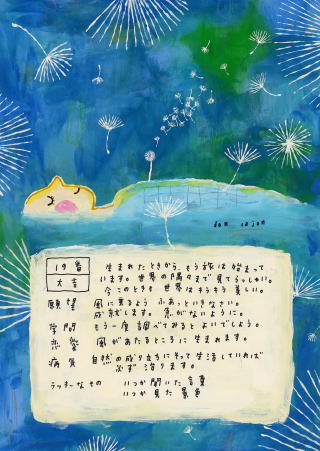 don cajon
19番
大吉
生まれたときから、もう旅は始まって
います。世界の隅々まで見てらっしゃい。
今このときも世界はそうそう美しい。
願望 風に乗るよう ふぁっといきなさい。
成就します。急がないように。
学問 もう一度調べてみるとよいでしょう。
恋愛 風があたるところに生まれます。
病気 自然の成り立ちにそって生活していれば
必ず治ります。
ラッキーなもの いつか聞いた言葉
いつか見た景色